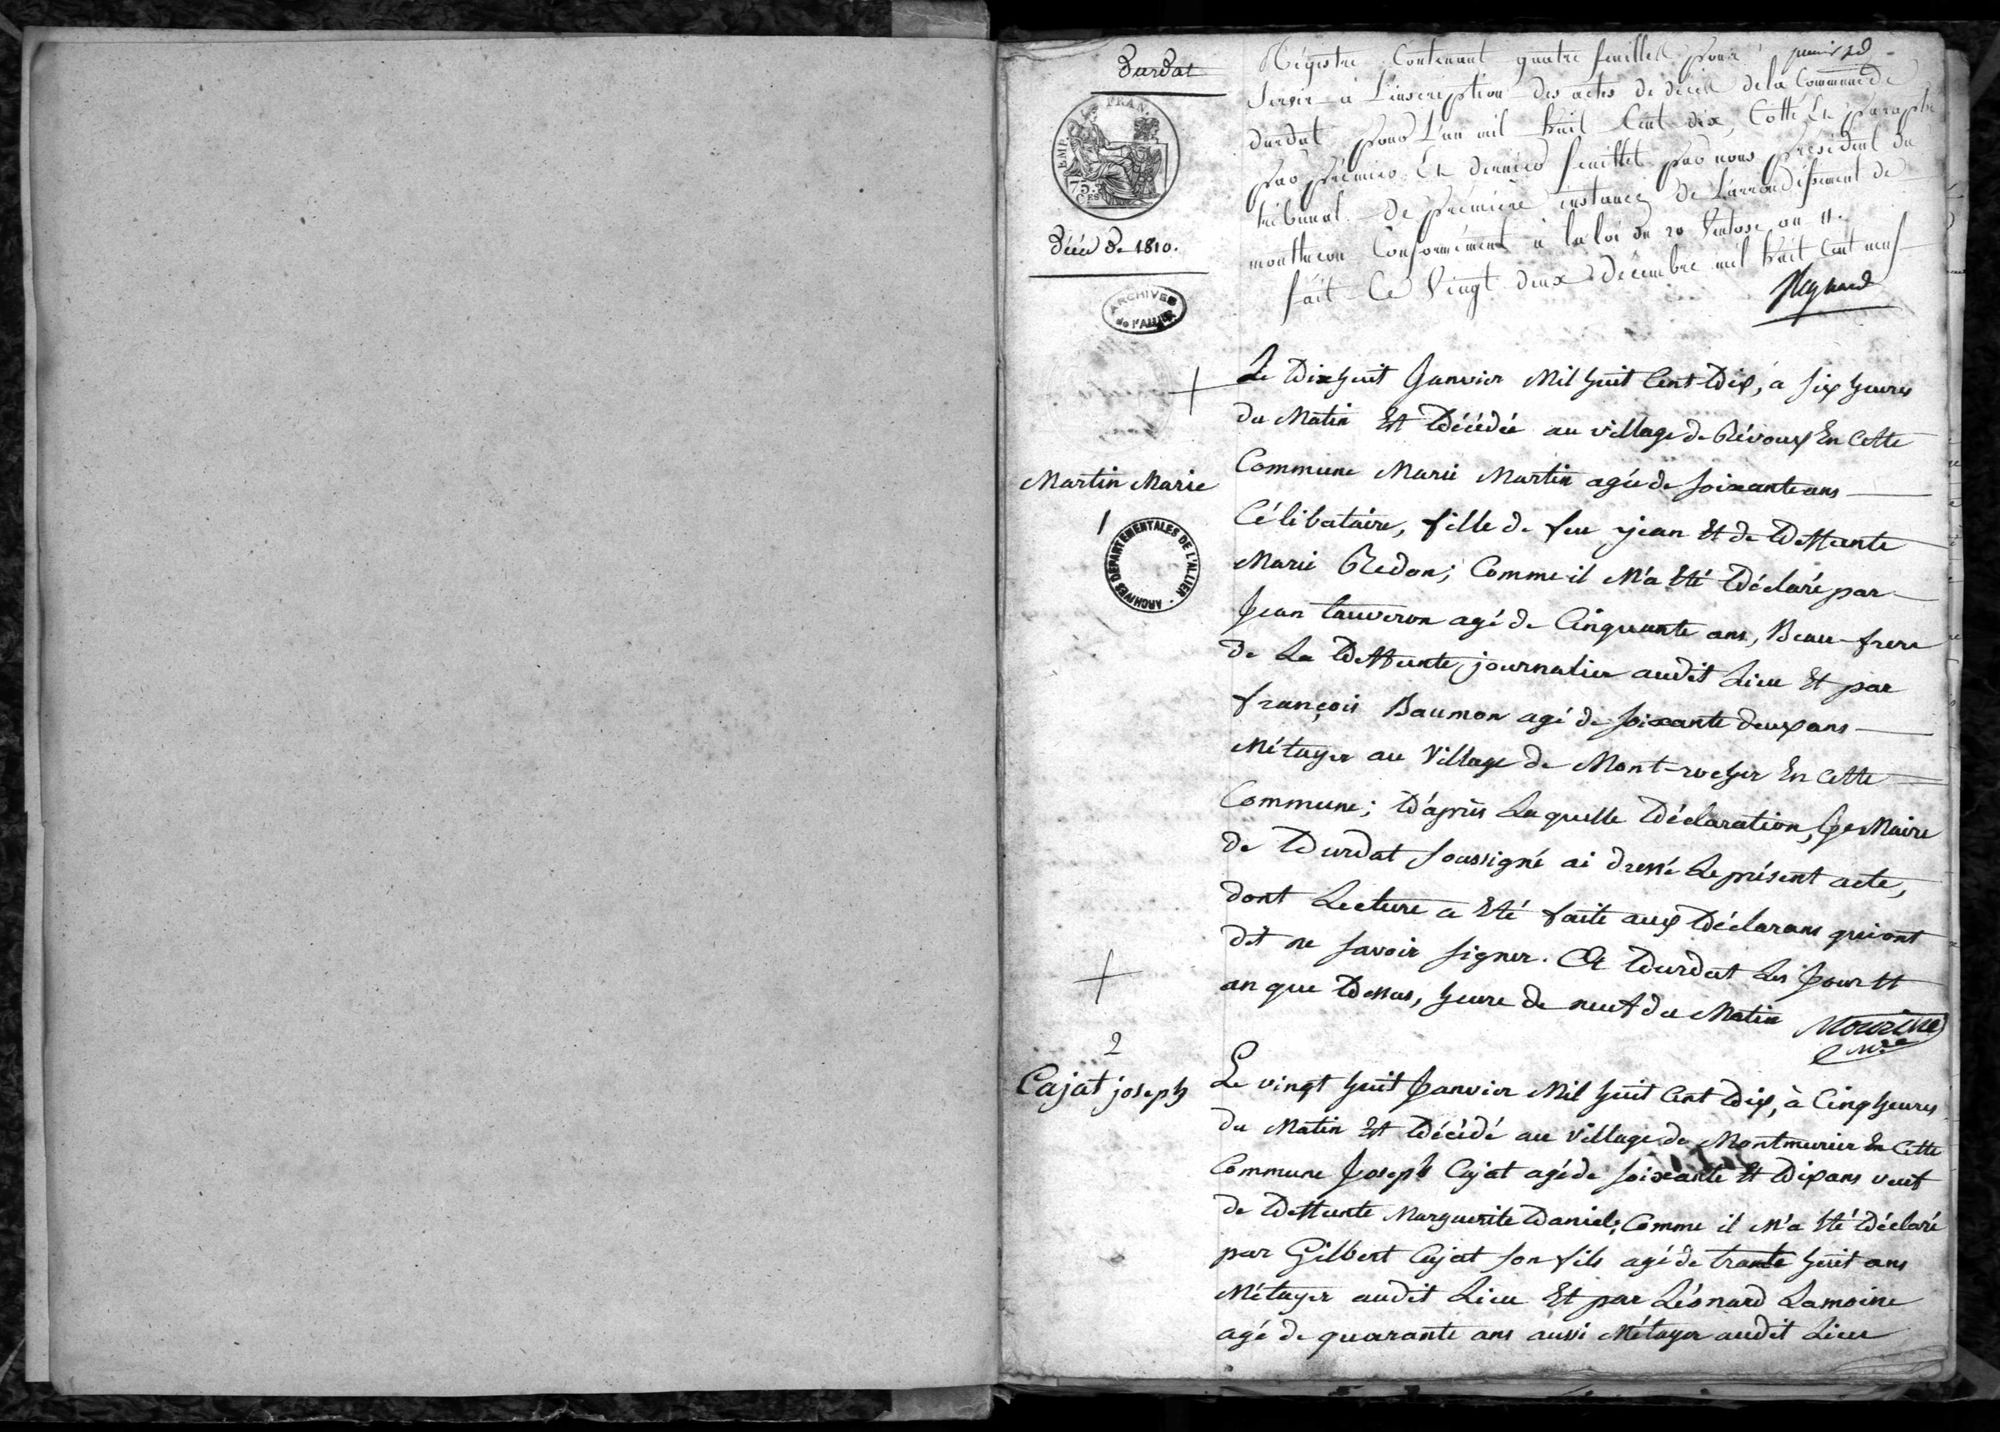 Durdat
EMP. FRAN.
75
CES
Décés de 1810.
ARCHIVES
de l'ALLIER
Régistre Contenant quatre feuillets pour
Servir à L'inscription des actes de décés de la Commune de
durdat pour L'an mil huit Cent dix, Cotté Et Paraphé
par Prémier Et dernier feuillet par nous président du
tribunal de première instance de L'arrondissement de
montlucon Conformément à la loi du 20 Ventose an 11.
fait Ce Vingt deux décembre mil huit Cent neuf
Martin Marie
1
ARCHIVES DÉPARTEMENTALES DE L'ALLIER
Le Dix huit Janvier Mil huit Cent Dix, à six heures
du Matin Est Décédée au village de Révoux En Cette
Commune Marie Martin agée de soixante ans
Célibataire, fille de feu jean Et de Deffunte
Marie Redon; Comme il M'a Eté Déclaré par
Jean tauveron agé de Cinquante ans, Beau-frere
de La Deffunte, journalier audit Lieu Et par
françois Baumon agé de soixante deux ans
Métayer au Village de Mont-rocher En Cette
Commune; D'après Laquelle Déclaration, Je Maire
de Durdat soussigné ai dressé Le présent acte,
dont Lecture a Eté faite aux Déclarans qui ont
dit ne savoir signer. A Durdat Les Jour Et
an que Dessus, heure de neuf du Matin
2
Cajat joseph
Le vingt huit Janvier Mil huit Cent Dix, à Cinq heures
du Matin Est Décédé au village de Montmurier En Cette
Commune Joseph Cajat agé de soixante Et Dix ans veuf
de Deffunte Marguerite Daniel; Comme il M'a Eté Déclaré
par Gilbert Cajat son fils agé de trante huit ans
Métayer audit Lieu Et par Léonard Lamoine
agé de quarante ans aussi Métayer audit Lieu